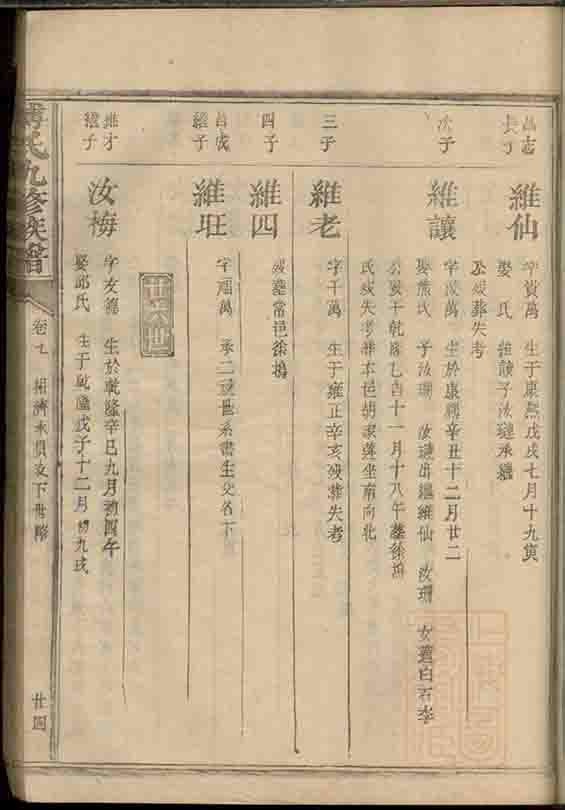 昌志
長子
維仙
字賀萬 生于康熙戊戌七月十九寅
娶 氏 維讓子汝璉承繼
公歿葬失考
次子
維讓
字 萬 生於康熙辛丑十二月廿二
娶熊氏 子汝珊 汝璉出繼維仙 汝珊 女適白石李
公歿于乾隆乙酉十一月十八午葬徐塢
氏歿失考葬本邑胡家 坐南向北
三子
維老
字千萬 生于雍正辛亥歿葬失考
四子
維四
歿葬常邑徐塢
昌 
繼子
維旺
字 萬 承二 世系書生父名下
廿六世
維才
繼子
汝梅
字友 生於乾隆辛巳九月初四午
娶邱氏 生于乾隆戊子十二月初九戌
傅氏九修族譜
卷之 相濟承 支下世
廿四